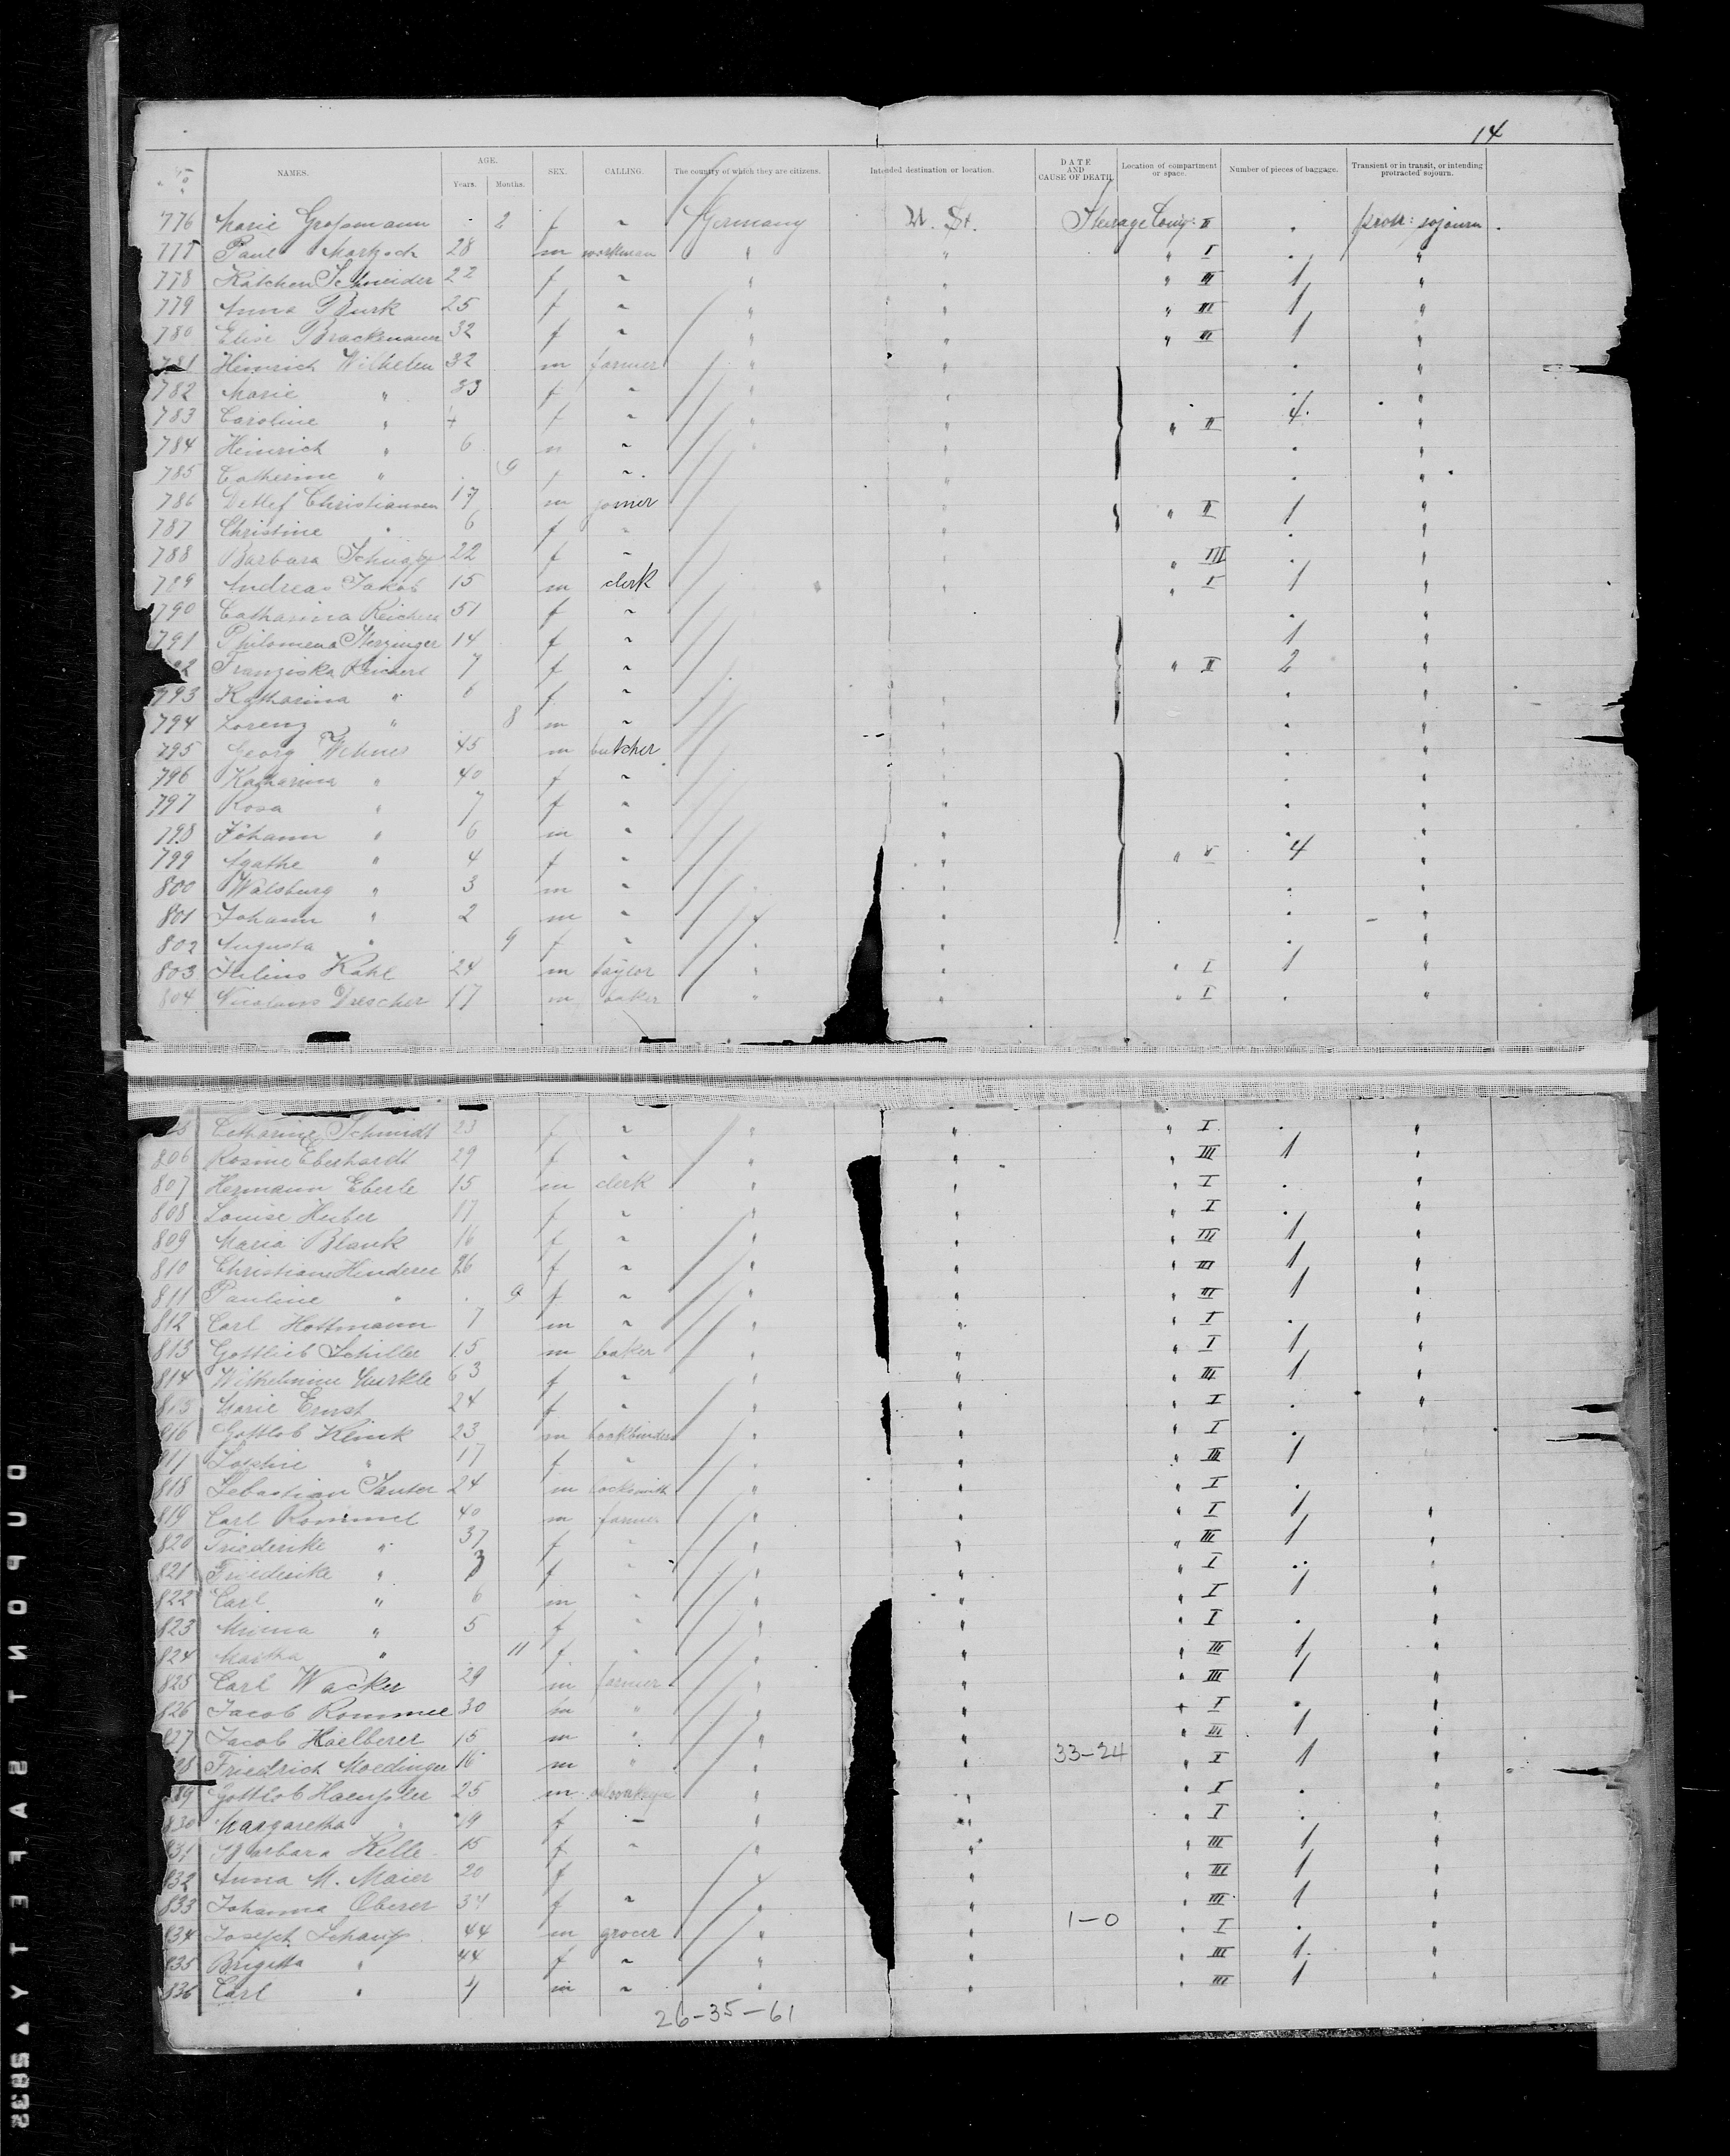 14
No. NAMES. AGE. Years. Months. SEX. CALLING. The country of which they are citizens. Intended destination or location. DATE AND CAUSE OF DEATH. Location of compartment or space. Number of pieces of baggage. Transient or in transit, or intending protracted sojourn.
776 Marie Grossmann 2 f " Germany U. St. Steerage Comp: II . protr: sojourn.
777 Paul 28 m workman " " " I . "
778 Kätchen Schneider 22 f " " " " III 1 "
779 Anna Burk 25 f " " " " III 1 "
780 Elise Brackmann 32 f " " " " III 1 "
781 Heinrich Wilhelm 32 m farmer " " . "
782 Marie " 33 f " " " . "
783 Caroline " f " " " " II 4 "
784 Heinrich " 6 m " " " . "
785 Catherine " 9 f " " . "
786 Detlef Christiansen 17 m joiner " " II 1 "
787 Christine " 6 f " " . "
788 Barbara 22 f " " " III . "
789 Andreas Jakob 15 m clerk " " I 1 "
790 Catharina Reichert 51 f " . "
791 Philomena Sterzinger 14 f " 1 "
92 Franziska Reichert 7 f " " II 2 "
793 Katharina " 6 f " " . "
794 Lorenz " 8 m " " . "
795 Georg Wehner 45 m butcher " . "
796 Katharina " 40 f " " . "
797 Rosa " 7 f " " . "
798 Johann " 6 m " " . "
799 Agathe " 4 f " " " 4 "
800 Walsburg " 3 m " " . "
801 Johann " 2 m " " " . "
802 Augusta " 9 f " " " . "
803 Julius Kahl 24 m taylor " " " I 1 "
804 Nicolaus Drescher 17 m baker " " " I . "
5 Catharine Schmidt 23 f " " " " I . "
806 Rosine Eberhardt 29 f " " " " III 1 "
807 Hermann Eberle 15 m clerk " " " I . "
808 Louise Huber 17 f " " " " I . "
809 Maria Blank 16 f " " " " III 1 "
810 Christiane Hinderer 26 f " " " " III 1 "
811 Pauline " 9 f " " " " III 1 "
812 Carl Hottmann 7 m " " " " I . "
813 Gottlieb Schiller 15 m baker " " " I 1 "
814 Wilhelmine 63 f " " " " III 1 "
815 Marie Ernst 24 f " " " " I . "
816 Gottlob Klink 23 m bookbinder " " " I .
817 Sophie " 17 f " " " " III 1
818 Sebastian Santer 24 m locksmith " " " I .
819 Carl Rommel 40 m farmer " " " I 1 "
820 Friederike " 37 f " " " " III 1 "
821 Friederike " 7 f " " " " I . "
822 Carl " 6 m " " " " I 1 "
823 Minna " 5 f " " " " I . "
824 Martha " 11 f " " " " III 1 "
825 Carl Wacker 29 m farmer " " " III 1 "
826 Jacob Rommel 30 m " " " " I . "
827 Jacob Haelberer 15 m " " " " III 1 "
28 Friedrich Moedinger 16 m " " " 33-24 " I 1 "
89 Gottlob Haenssler 25 m " " " I . "
830 Margaretha " 19 f – " " " I . "
831 Barbara Kelle 15 f " " " " III 1 "
832 Anna M. Maier 20 f " " " III 1 "
833 Johanna Oberer 34 f " " " " III 1 "
834 Joseph 44 m grocer " " 1-0 " I . "
835 Brigitta " 44 f " " " " III 1 "
836 Carl " 4 m " " " " III 1 "
26-35-61
DUPONT SAFETY 5832